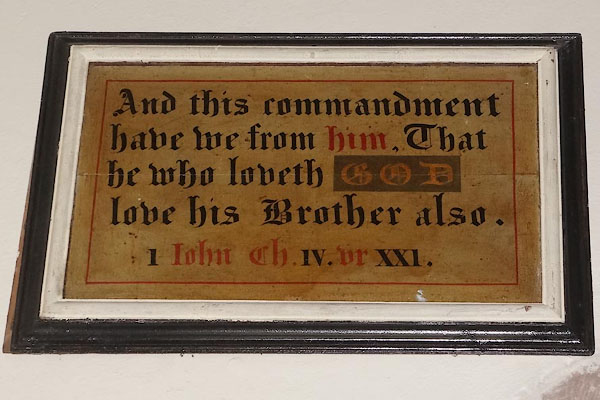 And this commandment
have we from him, That
he who loveth GOD
love his Brother also.
1 Iohn Ch. IV. vr XXI.